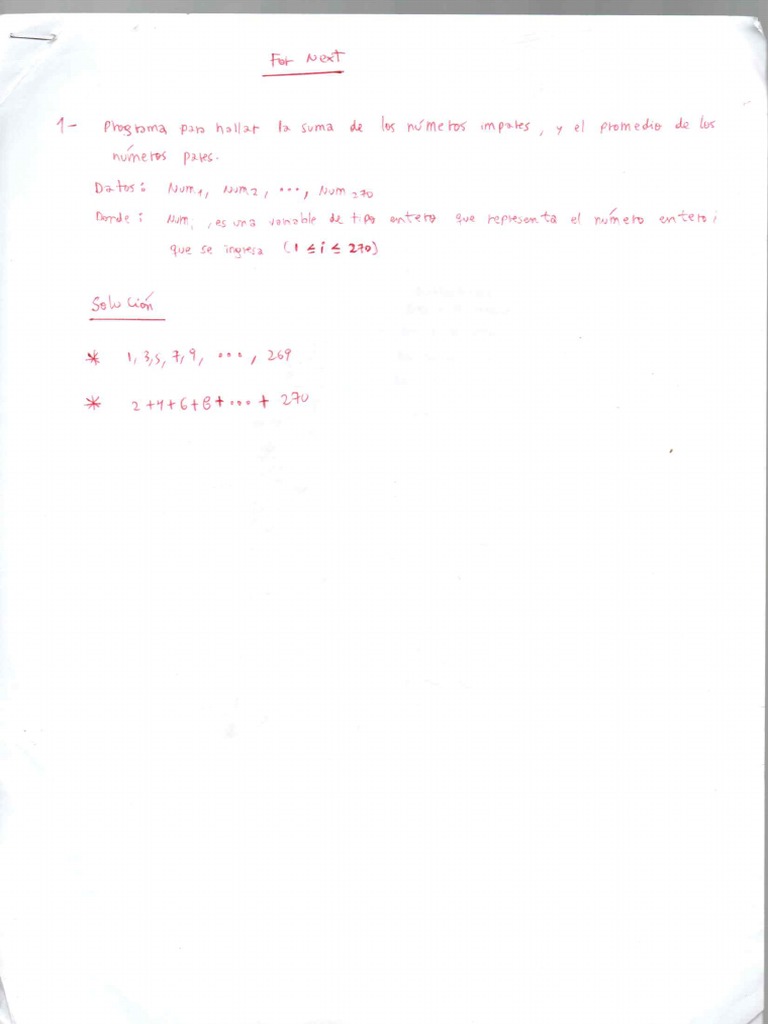 For Next
1- Programa para hallar la suma de los números impares, y el promedio de los
números pares.
Datos: Num1, Num2, ..., Num270
Donde: Numi, es una variable de tipo entero que representa el número entero i
que se ingresa (1 ≤ i ≤ 270)
Solución
* 1,3,5,7,9, ..., 269
* 2+4+6+8+...+ 270